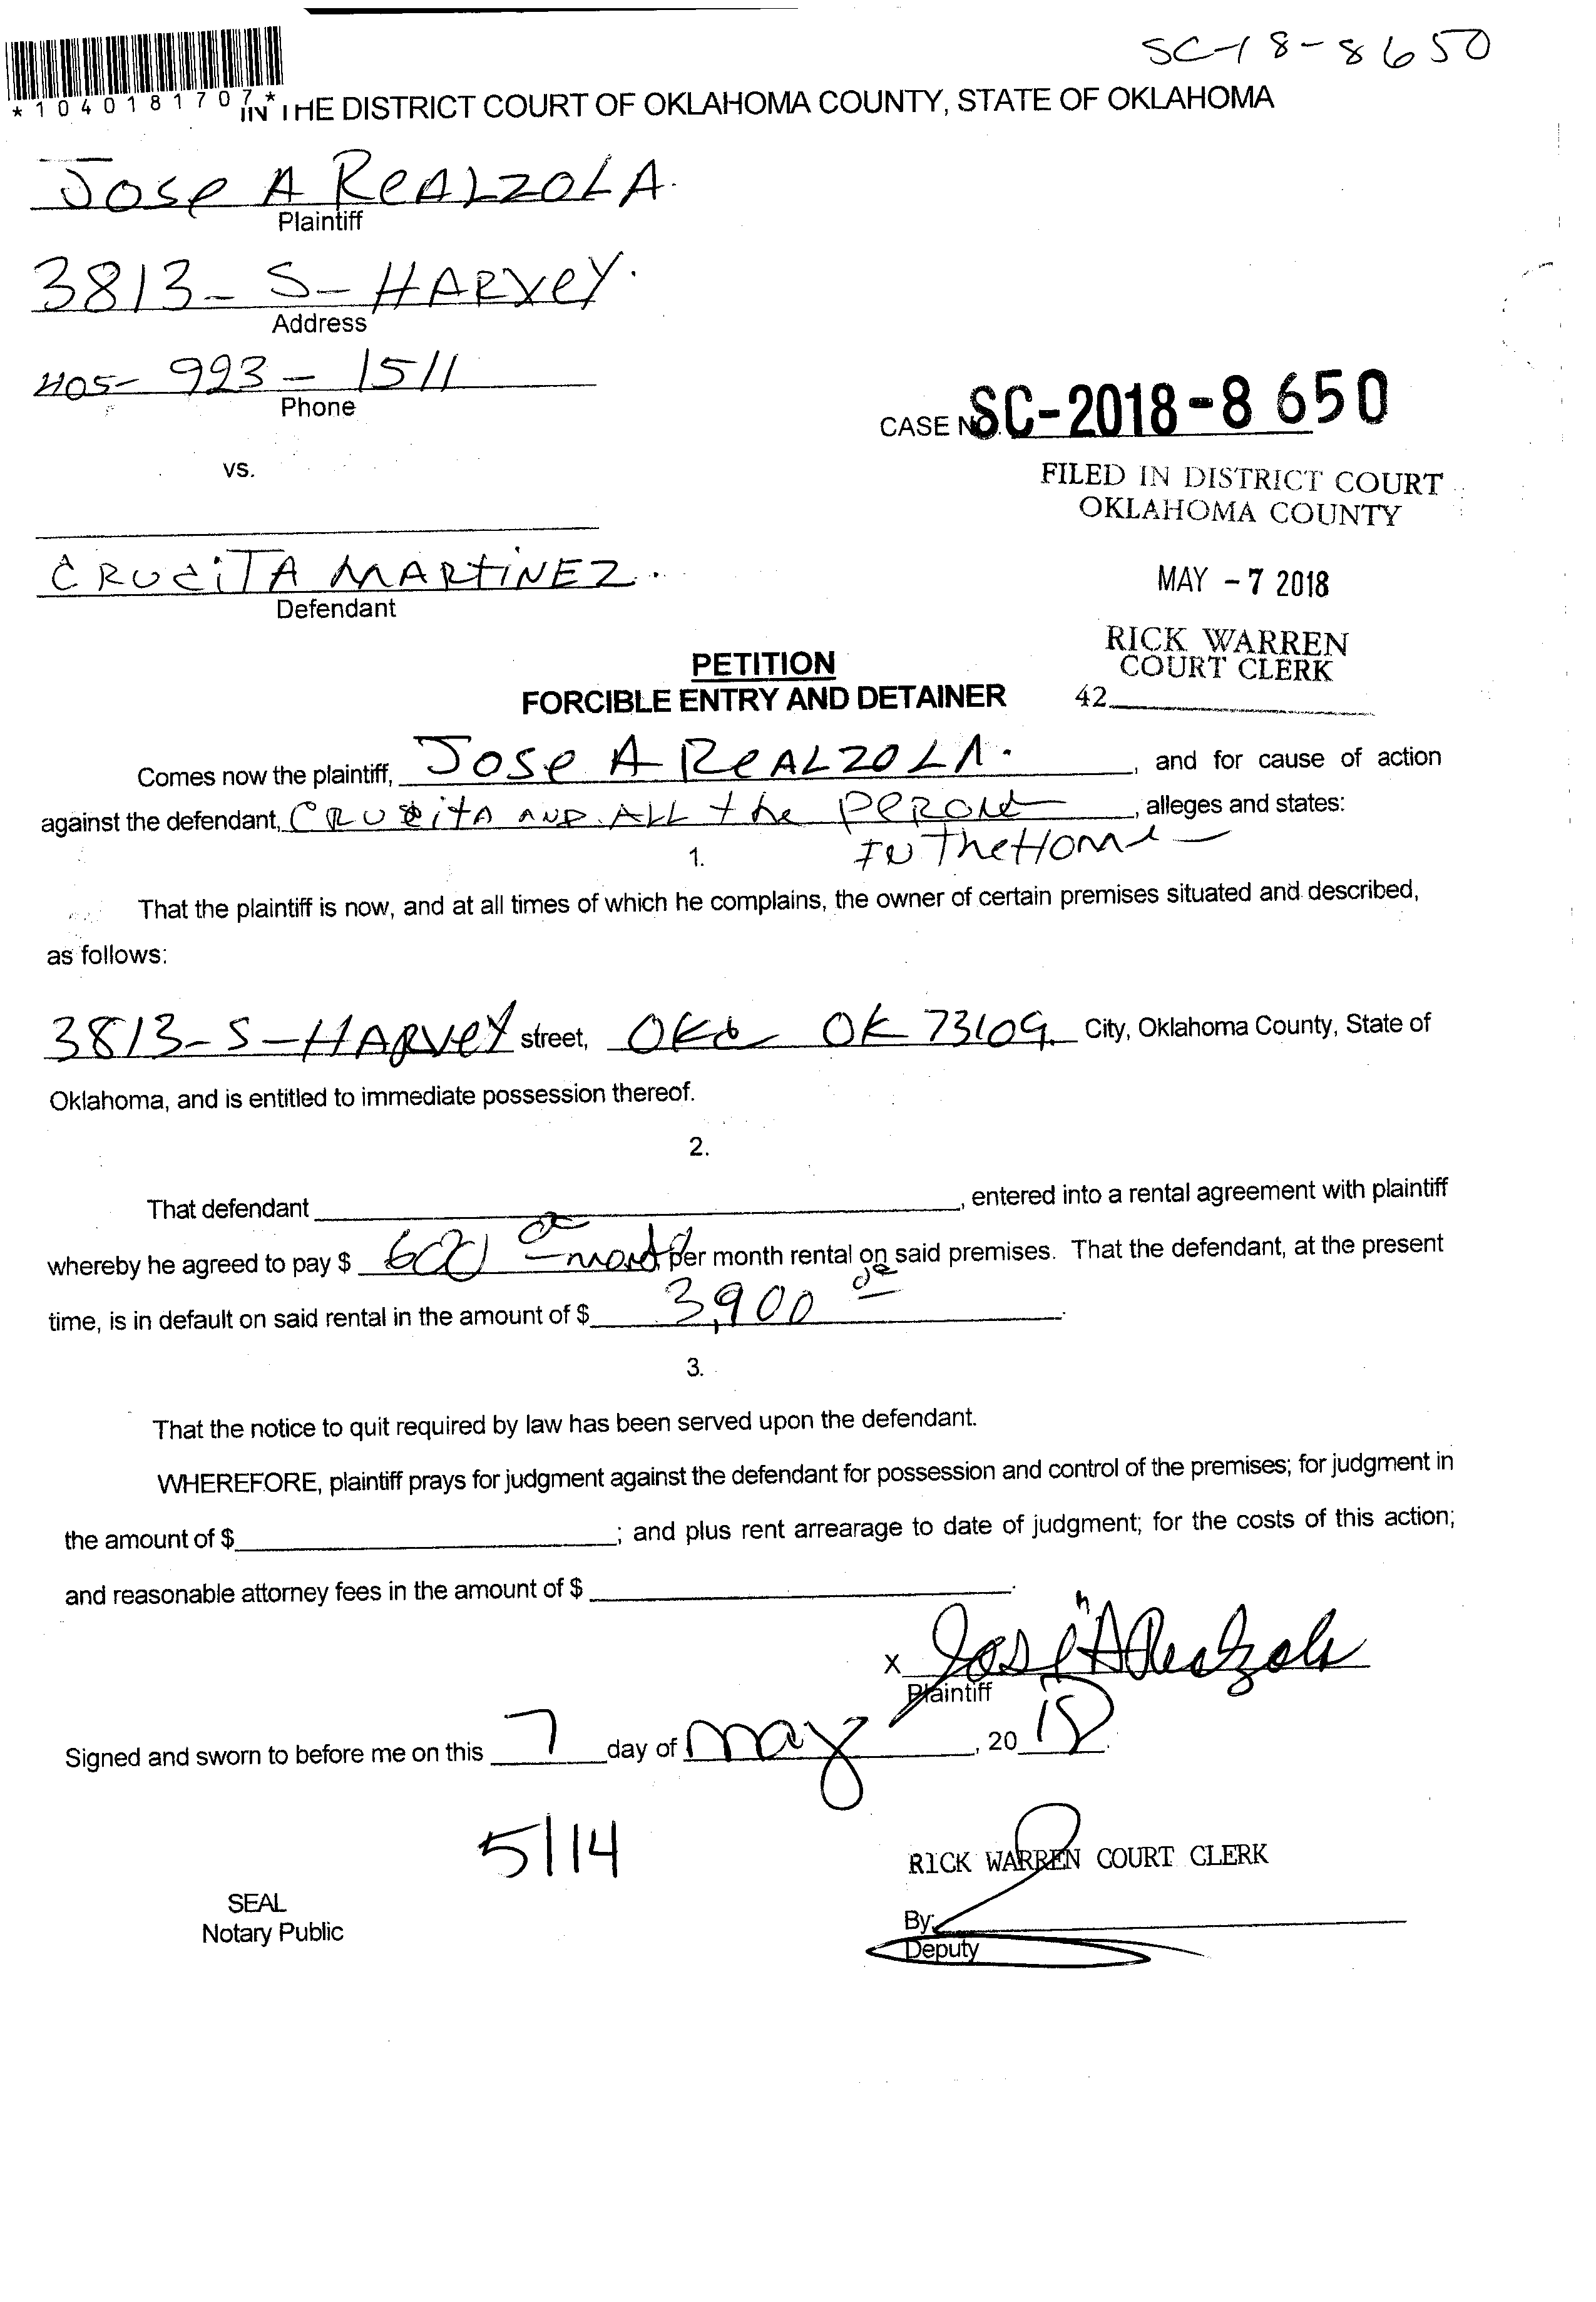 SC-18-8650
*1040181707*
IN THE DISTRICT COURT OF OKLAHOMA COUNTY, STATE OF OKLAHOMA
Jose A ReALZOLA.
Plaintiff
3813- S- HARVeY.
Address
405- 993- 1511
Phone
CASE NO. SC-2018-8 650
vs.
FILED IN DISTRICT COURT
OKLAHOMA COUNTY
CRUCiTA MARTiNEZ.
Defendant
MAY -7 2018
RICK WARREN
COURT CLERK
42
PETITION
FORCIBLE ENTRY AND DETAINER
Comes now the plaintiff, Jose A ReALZOLA. , and for cause of action
against the defendant, CRUCitA AND ALL the PERONE , alleges and states:
IN The HOMe
1.
That the plaintiff is now, and at all times of which he complains, the owner of certain premises situated and described,
as follows:
3813-S-HARVeY street, OKC OK 73109. City, Oklahoma County, State of
Oklahoma, and is entitled to immediate possession thereof.
2.
That defendant , entered into a rental agreement with plaintiff
whereby he agreed to pay $ 600 00 month per month rental on said premises. That the defendant, at the present
time, is in default on said rental in the amount of $ 3,900 00 .
3.
That the notice to quit required by law has been served upon the defendant.
WHEREFORE, plaintiff prays for judgment against the defendant for possession and control of the premises; for judgment in
the amount of $ ; and plus rent arrearage to date of judgment; for the costs of this action;
and reasonable attorney fees in the amount of $ .
x Jose "A" Realzola
Plaintiff
Signed and sworn to before me on this 7 day of may , 20 18 .
5/14
RICK WARREN COURT CLERK
SEAL
Notary Public
By:
Deputy